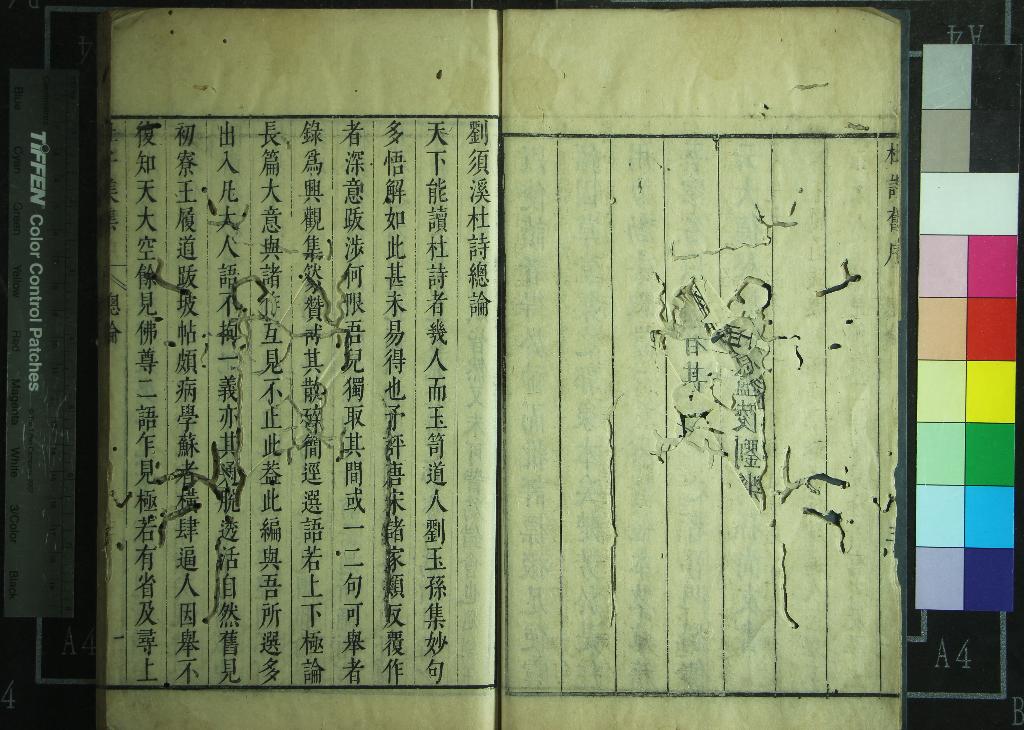 杜詩舊序
三
劉須溪杜詩總論
天下能讀杜詩者幾人而玉笥道人劉玉孫集妙句
多悟解如此甚未易得也予評唐宋諸家類反覆作
者深意跋涉何限吾兒獨取其間或一二句可舉者
錄爲興觀集欲贊其散簡逕選語若上下極論
長篇大意與諸作互見不止此葢此編與吾所選多
出入凡大人語不拘一義亦其通脫透活自然舊見
初寮王履道跋坡帖頗病學蘇者橫肆逼人因舉不
復知天大空餘見佛尊二語乍見極若有省及尋上
總論
一
TIFFEN Color Control Patches
Blue Cyan Green Yellow Red Magenta White 3/Color Black
A4
A4
A4